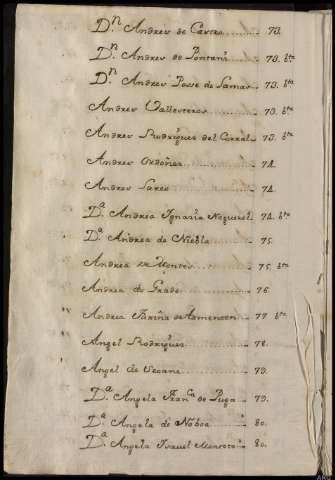 Dn Andres de Castro 73.
Dn Andres de Pontans 73. bta
Dn Andres Posse de Lamas 73. bta
Andres Vallesteros 73. bta
Andres Rodrigues del Corral 73. bta
Andres Ordoñes 74.
Andres Lares 74.
Da. Andrea Ignasia Noguerol 74. bta
Da. Andrea de Niebla 75.
Andrea de Montes 75. bta
Andrea do Prado 76.
Andrea Fariña de Armenten 77 bta
Angel Rodrigues 78.
Angel de Seoane 79.
Da. Angela Franca. de Puga 79.
Da. Angela de Noboa 80.
Da. Angela 80.